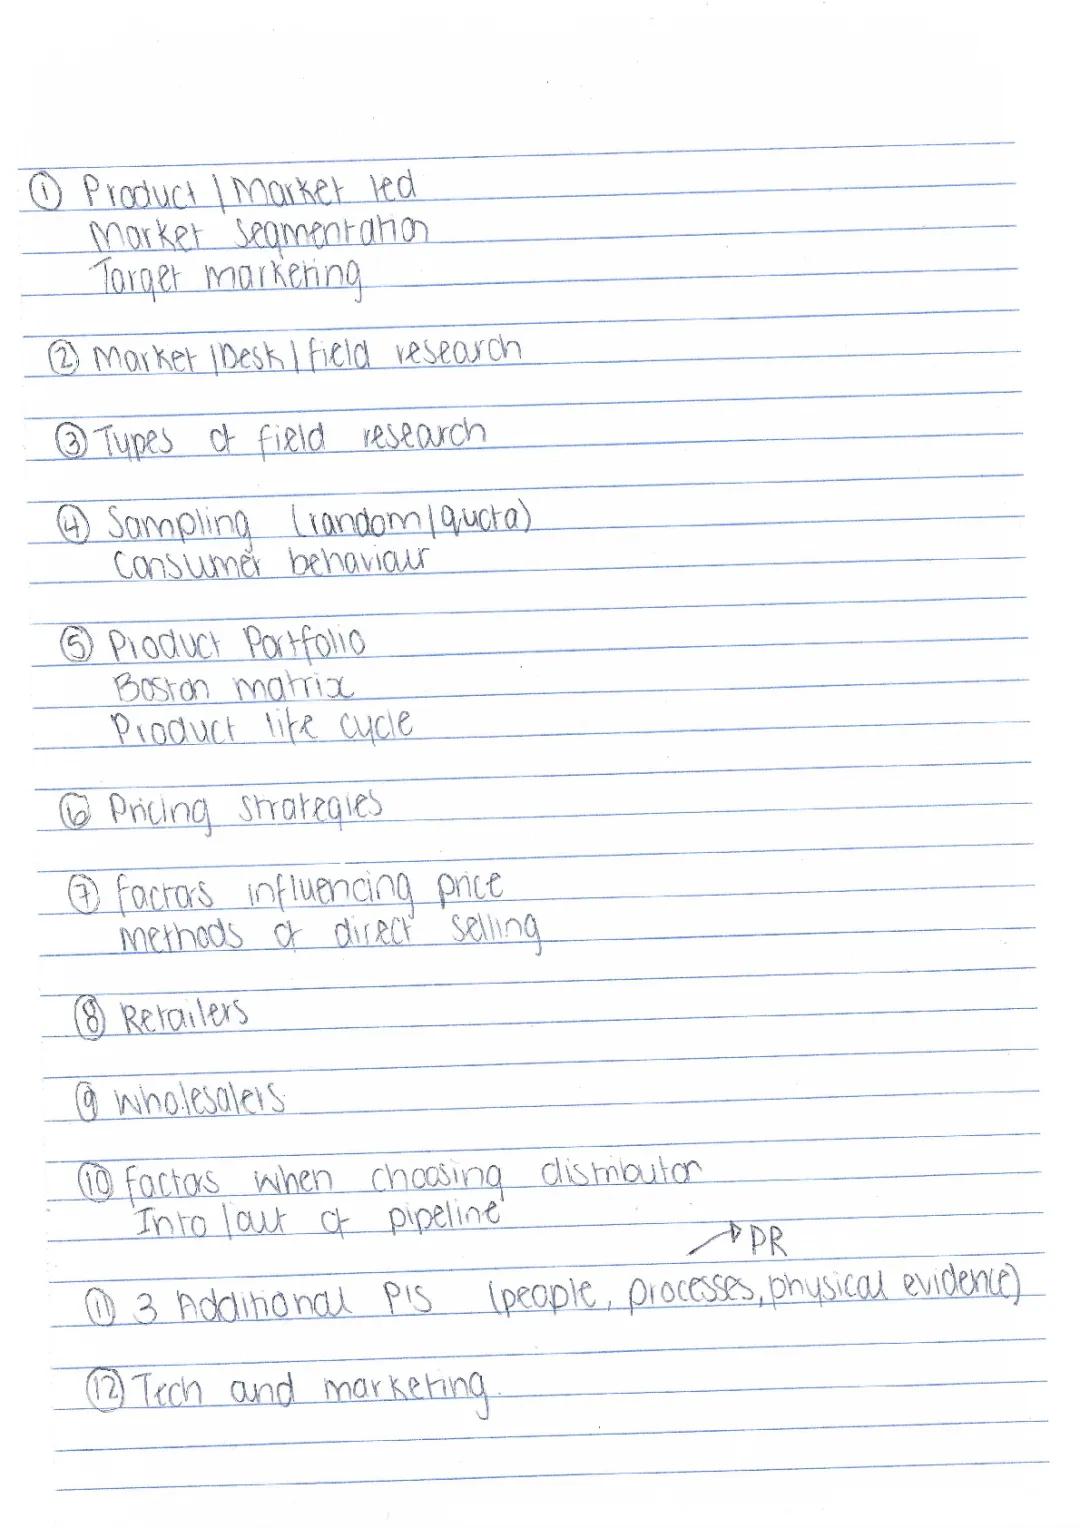 ① Product | Market led
Market segmentation
Target marketing
② Market | Desk | field research
③ Types of field research
④ Sampling (random/quota)
Consumer behaviour
⑤ Product Portfolio
Boston matrix
Product life cycle
⑥ Pricing strategies
⑦ factors influencing price
Methods of direct selling
⑧ Retailers
⑨ wholesalers
⑩ factors when choosing distributor
Into/out of pipeline
PR
⑪ 3 Additional P's (people, processes, physical evidence)
⑫ Tech and marketing.